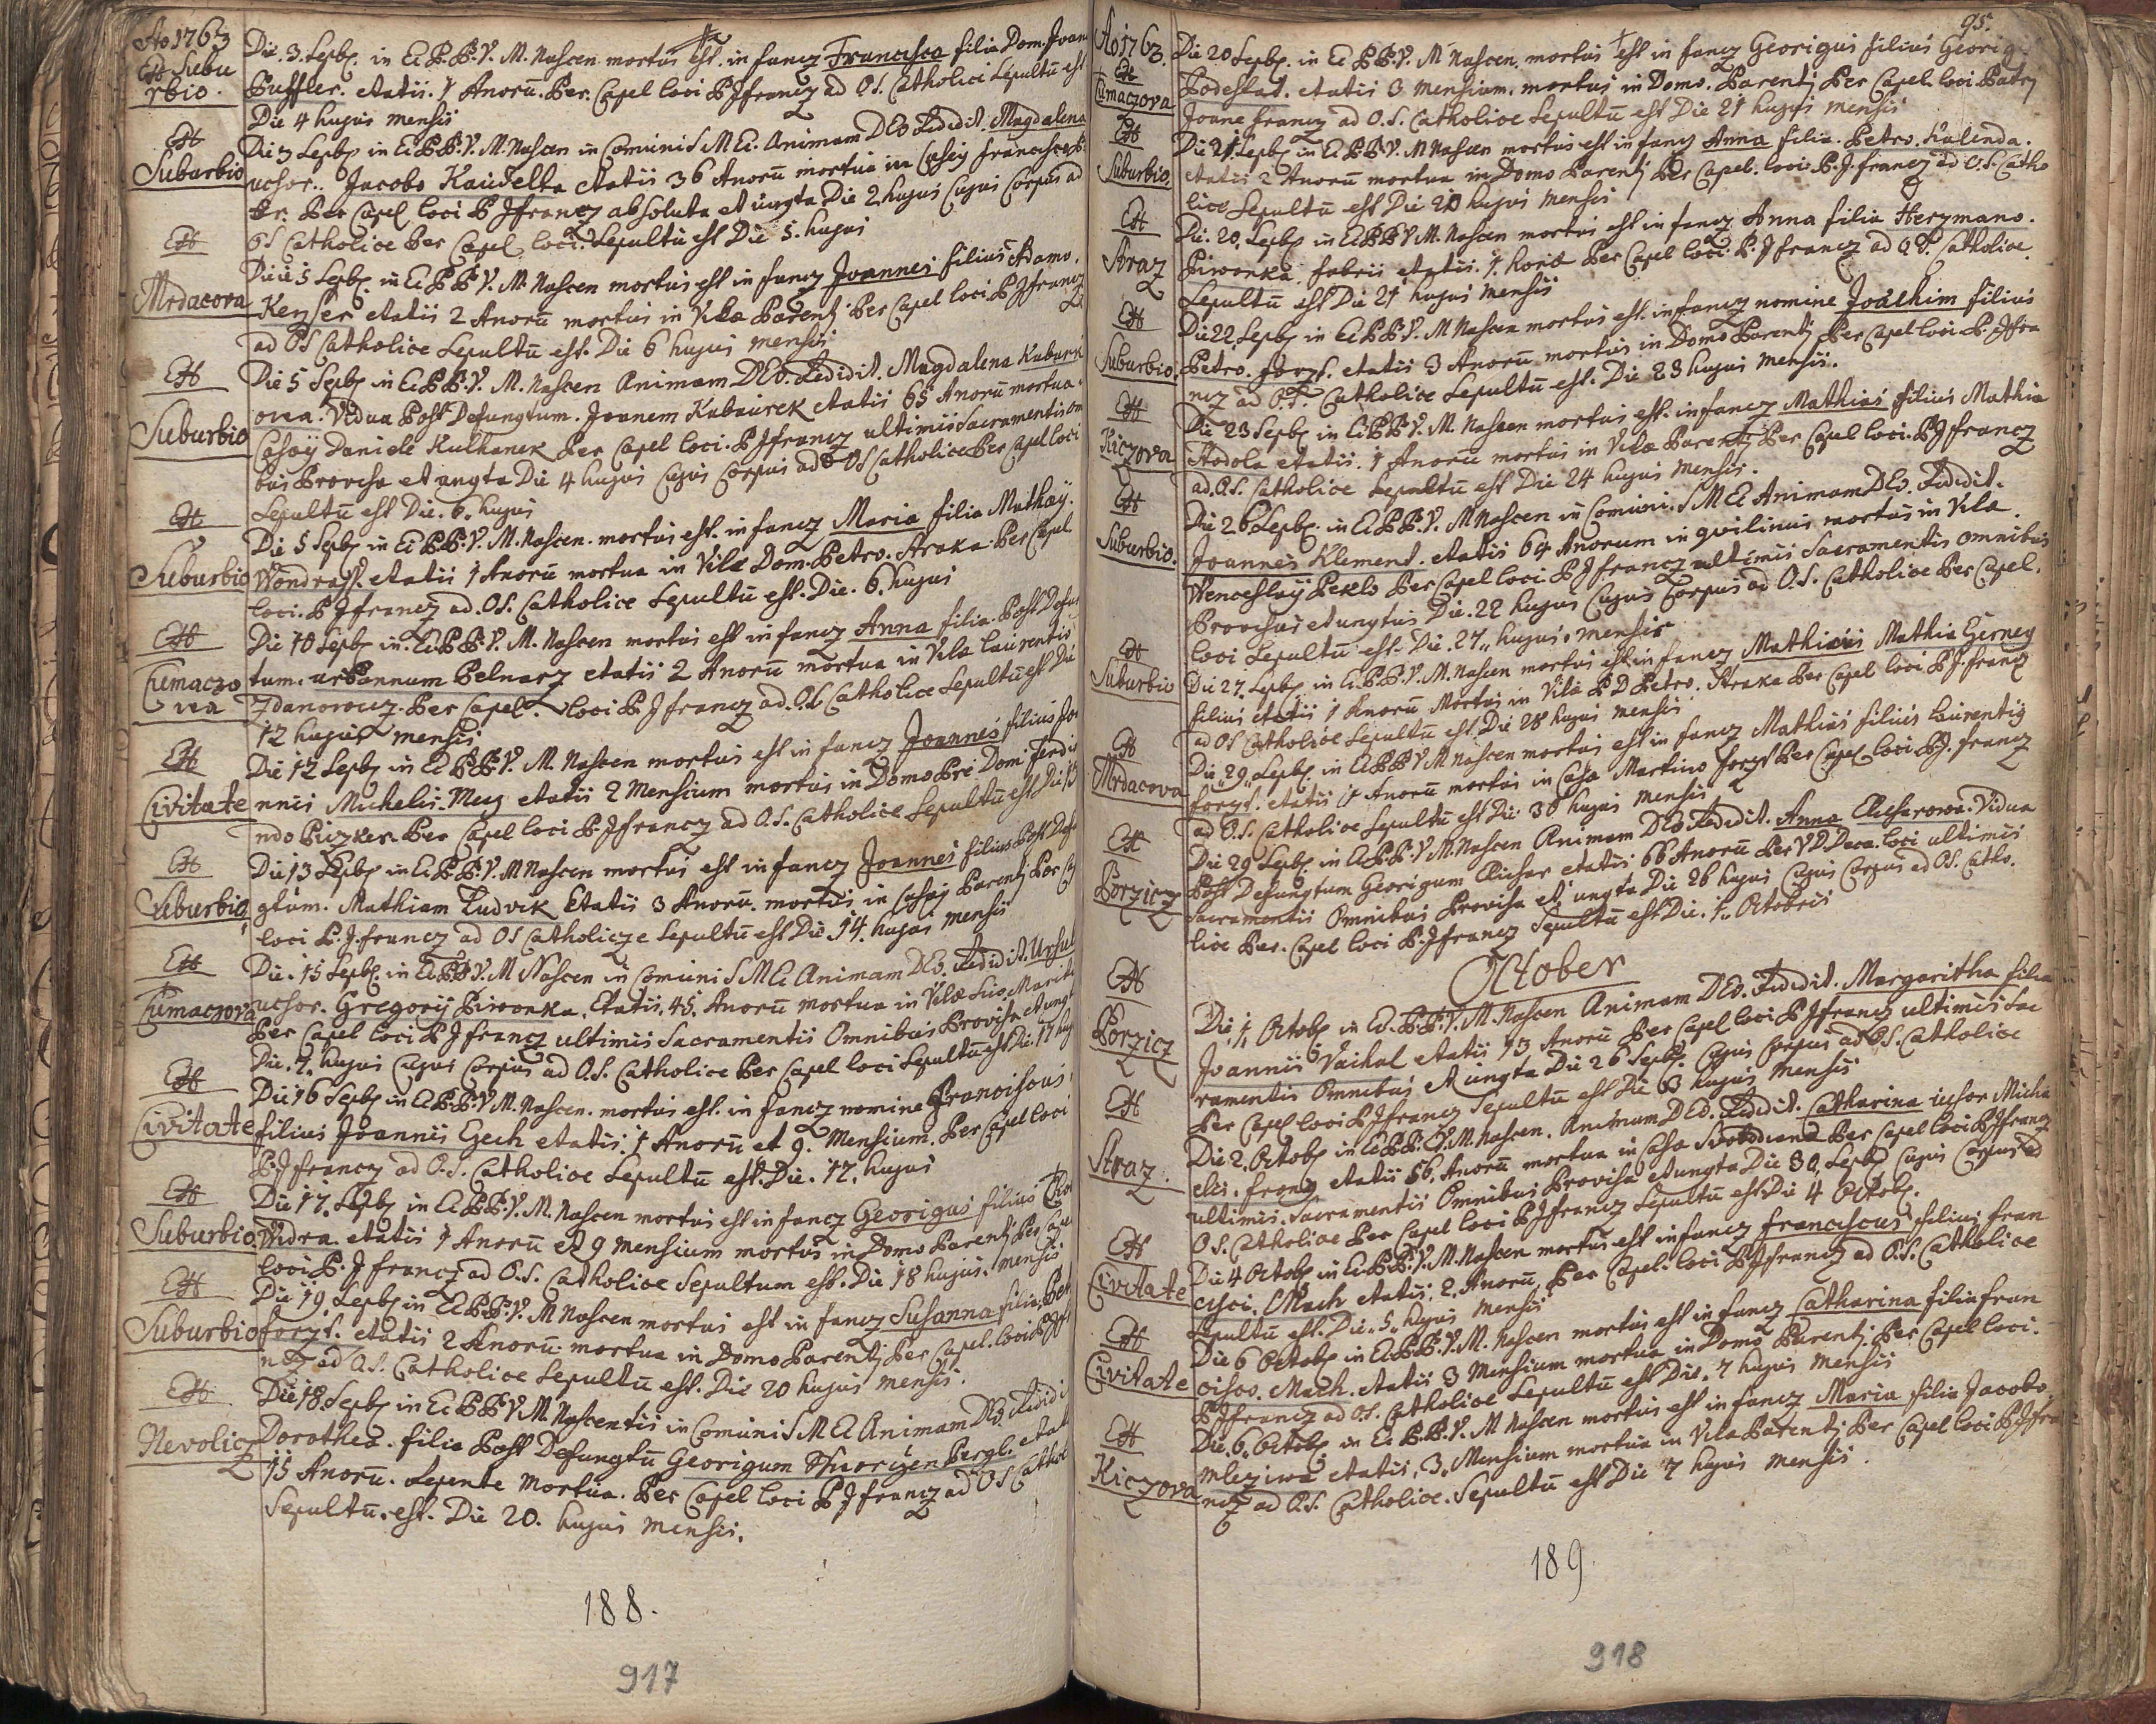 Ao 1763
Ex Subu
rbio.
Die. 3. Sepbr. in E. B. B. V. M. Nascen. mortus est. in fancz Francisca filia Dom. Joan
Puffler. etatis. 1 Anorū. Per. Capel loci P J francz ad O.S. Catholici Sepultū est
Die 4 hujus mensis
Ex Suburbio
Die 3 Sepbr in E. B. B. V. M. Nascen in Comuni S M E. Animam DEo Redidit. Magdalena
uchor.. Jacobo Kaudelka etatis 36 Anorū mortua in Casey
Per Capel loci P J francz absoluta et ungta Die 2 hujus Cujus Corpus ad
OS Catholice Per Capel loci. Sepultū est Die 5. hujus
Ex Mrdacova
Die 5 Sepbr. in E. B. B. V. M. Nascen mortus est in fancz Joannes filius Adamo.
Keyser etatis 2 Anorū mortus in Vila Parentj Per Capel loci P J francz
ad OS Catholice Sepultū est. Die 6 hujus mensis
Ex Suburbio
Die 5 Sepbr in E. B. B. V. M. Nascen Animam DEo. Redidit. Magdalena Kubaurk
ova. Vidua Post Defungtum. Joanem Kubaurek etatis 65 Anorū mortua.
Casey Daniele Kulhanek Per Capel loci. P J francz ultimis Sacramentis om
bus Provisa et ungta Die 4 hujus Cujus Corpus ad OS Catholice Per Capel loci
Sepultū est Die. 6. hujus
Ex Suburbio
Die 5 Sepbr in E. B. B. V. M. Nascen. mortus est. in fancz Maria filia Mathey.
Wondrass. etatis 1 Anorū mortua in Vila Dom. Petro. Straka. Per Capel
loci. P J francz ad. OS. Catholice Sepultū est. Die. 6. hujus
Ex Tumaczo
va
Die 10 Sepbr in. E. B. B. V. M. Nascen mortus est in fancz Anna filia. Post Defun
tum. urbannum Pelnarz etatis 2 Anorū mortua in Vila laurentio
Zdanowcz. Per Capel. loci P. J francz ad. O.S. Catholice Sepultū est Die
12 hujus mensis
Ex Civitate
Die 12 Sepbr in E. B. B. V. M. Nascen mortus est in fancz Joannes filius Joa
nnis Michelis. etatis 2 Mensium mortus in Domo Dom Ferdin
ndo Piczker. Per Capel loci P. J francz ad O.S. Catholice Sepultū est Die 13
Ex Suburbio
Die 13 Sepbr in E. B. B. V. M Nascen mortus est in fancz Joannes filius Post Defu
gtum. Mathiam Ludvik Etatis 3 Anorū. mortus in Casey Parentj Per C
loci P. J. francz ad OS Catholicze Sepultū est Die 14. hujus mensis
Ex Tumaczova
Die. 15 Sepbr. in E. B. B. V. M Nascen in Comuni S M E Animam DEo. Redidit. Ursul
uchor. Gregorij Piwonka. Etatis. 45. Anorū mortua in Vila Suo. Marito
Per Capel loci P J francz ultimis Sacramentis Omnibus Provisa et ungt
Die. 7. hujus Cujus Corpus ad O.S. Catholice Per Capel loci Sepultū est Die. 17 huj
Ex Civitate
Die 16 Sepbr in E. B. B. V M. Nascen. mortus est. in fancz nomine Franciscus
filius Joannis Czech etatis. 1 Anorū et 9. Mensium. Per Capel loci
P. J francz ad O.S. Catholice Sepultū est. Die. 17. hujus
Ex Suburbio
Die 17. Sepbr in E. B. B. V. M. Nascen mortus est in fancz Georigus filius
Widra. etatis 1 Anorū et 9 Mensium mortus in Domo Parentj Per Cape
loci P. J francz ad O.S. Catholice Sepultum est. Die 18 hujus. mensis
Ex Suburbio
Die 19. Sepbr in E. B. B. V. M Nascen mortus est in fancz Susanna filia. Pet
Forzt. etatis 2 Anorū. mortua in Domo Parentj Per Capel. loci P J fr
ncz ad O.S. Catholice Sepultū est. Die 20 hujus mensis.
Ex Nevolicz
Die 18. Sepbr in E. B. B. V M. Nascentis in Comuni S M E Animam DEo. Redidi
Dorothea. filia Post Defungtū Georigum etat
15 Anorū. Repente Mortua. Per Capel loci P J francz ad O S Cathol
Sepultū. est. Die 20. hujus mensis.
188.
917
95.
Ao 1763.
Ex Tumaczova
Die 20 Sepbr. in E. B. B. V. M Nascen. mortus est in fancz Georigus filius Georig
Podestat. etatis 3 mensium. mortus in Domo. Parentj Per Capel. loci Patrj
Joane francz ad O.S. Catholice Sepultū est Die 21 hujus mensis
Ex Suburbio.
Die 21 Sepbr in E. B. B. V. M Nascen mortus est in fancz Anna filia. Petro. Kalenda.
etatis 2 Anorū mortua in Domo Parentj Per Capel. loci. P. J. francz ad O.S. Catho
lice Sepultū est Die 20 hujus mensis
Ex Straz
Die. 20. Sepbr in E. B. B. V. M. Nascen mortus est in fancz Anna filia Herzmano.
Piwonka, fabrii etatis. 1. hora Per Capel loci. P. J francz ad O.S. Catholice.
Sepultū est Die 21 hujus mensis
Ex Suburbio.
Die 22 Sepbr in E. B. B. V. M Nascen mortus est. in fancz nomine Joachim filius
Petro. Forzt. etatis 3 Anorū mortus in Domo Parentj Per Capel loci P. J fra
ncz ad O.S. Catholice Sepultū est. Die 23 hujus mensis.
Ex Kiczova
Die 23 Sepbr in E. B. B. V. M. Nascen mortus est. in fancz Mathias filius Mathia
Hodola etatis. 1 Anorū mortus in Vila Parentj Per Capel loci. P J francz
ad. O.S. Catholice Sepultū est Die 24 hujus mensis.
Ex Suburbio.
Die 26 Sepbr. in E. B. B. V. M Nascen in Comuni. S M E Animam DEo. Redidit.
Joannes Klement. etatis 64 Anorum in quilinus mortus in Vila.
Wenceslay Pekls Per Capel loci P J francz ultimis Sacramentis omnibus
Provisus et ungtus Die. 22 hujus Cujus Corpus ad O.S. Catholice Per Capel.
loci Sepultū est. Die. 27. hujus. mensis
Ex Suburbio
Die 27. Sepbr. in E. B. B. V. M. Nascen mortus est in fancz Mathias Mathia Gerney
filius etatis 1 Anorū Mortus in Vila P D Petro. Straka Per Capel loci P J. francz
ad OS Catholice Sepultū est Die 28 hujus mensis
Ex Mrdacova
Die. 29. Sepbr. in E. B. B. V M Nascen mortus est in fancz Mathias filius laurentij
Forzt. etatis 1 Anorū mortus in Casa Martino Forzt Per Capel loci P. J. francz
ad O.S. Catholice Sepultū est Die 30 hujus mensis
Ex Porzicz
Die 29 Sepbr. in E. B. B. V M. Nascen Animam DEo Redidit. Anna. Vidua
Post Defungtum Georigum etatis 66 Anorū Per V D. Deca. loci ultimis
Sacramentis Omnibus Provisa et ungta Die 26 hujus Cujus Corpus ad OS. Catho.
lice Per. Capel loci P. J francz Sepultū est Die. 1. Octobris
October
Ex Porzicz
Die. 1. Octobr in E. B. B. V. M. Nascen Animam DEo. Redidit. Margaritha filia
Joannis Vaichal etatis 13 Anorū Per Capel loci P J francz ultimis Sac
ramentis Omnibus et ungta Die 26 Sepbr. Cujus Corpus ad OS. Catholice
Per Capel loci P J francz Sepultū est Die 3 hujus mensis
Ex Straz.
Die 2. Octobr in E. B. B. V. M. Nascen. Animam DEo. Redidit. Catharina uchor Micha
elis. Franz etatis 66. Anorū mortua in Casa Per Capel loci P J francz
ultimis. Sacramentis Omnibus Provisa et ungta Die 30. Sepbr Cujus Corpus ad
OS. Catholice Per Capel loci P J francz Sepultū est Die 4 Octobr.
Ex Civitate
Die 4 Octobr in E. B. B. V. M. Nascen mortus est in fancz Franciscus filius Fran
cisci. Mach etatis. 2. Anorū. Per Capel. loci P J francz ad O.S. Catholice
Sepultū est. Die. 5. hujus mensis
Ex Civitate
Die 6 Octobr in E. B. B. V. M. Nascen mortus est in fancz Catharina filia Fran
cisco. Mach. etatis 3 Mensium mortua in Domo Parentj Per Capel loci.
P J francz ad OS. Catholice Sepultū est Die. 7 hujus mensis
Ex Kiczova
Die. 6. Octobr in E. B. B. V. M Nascen mortus est in fancz Maria filia Jacobo.
Mleziwa etatis. 3. Mensium mortua in Vila Parentj Per Capel loci P J fra
ncz ad O.S. Catholice. Sepultū est Die 7 hujus mensis.
189.
918